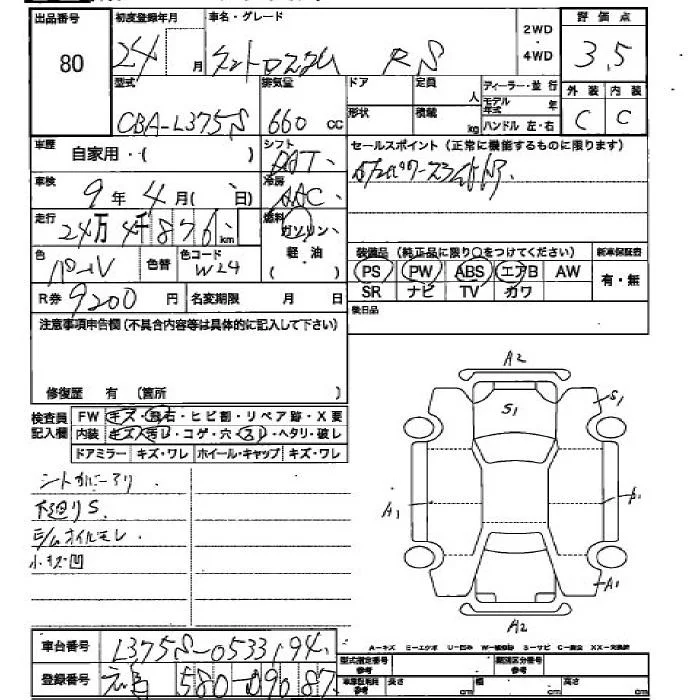 出品番号 初度登録年月 車名・グレード 2WD・4WD 評価点
80 24 月 タントエグゼカスタム RS 3.5
型式 排気量 ドア 定員 人 ディーラー・並行 外装 内装
CBA-L375S 660 cc 形状 積載 kg モデル年式 年 ハンドル 左・右 C C
車歴 自家用・( ) シフト DAT セールスポイント(正常に機能するものに限ります)
車検 9年 4月( 日) 冷房 AAC
走行 24万4千876km 燃料 ガソリン・軽・油
色 パール 色替 色コード W24
装備品(純正品に限り○をつけてください) 新車保証書
PS PW ABS エアB AW 有・無
SR ナビ TV カワ
R券 9200円 名変期限 月 日 後日品
注意事項申告欄(不具合内容等は具体的に記入して下さい)
修復歴 有 (箇所 )
検査員記入欄 FW キズ・飛石・ヒビ割・リペア跡・X要
内装 キズ・汚レ・コゲ・穴・スレ・ヘタリ・破レ
ドアミラー キズ・ワレ ホイール・キャップ キズ・ワレ
シートカバーアリ
下廻りS
E/Gオイルモレ
小キズ凹
A2
S1
S1
A1
A1
A2
車台番号 L375S-0533194
登録番号 580 90 87
A-キズ E-エクボ U-凹み W-補修跡 S-サビ C-腐食 XX-交換跡
型式指定番号 参考 類別区分番号 参考
参考 長さ cm 幅 cm 高さ cm